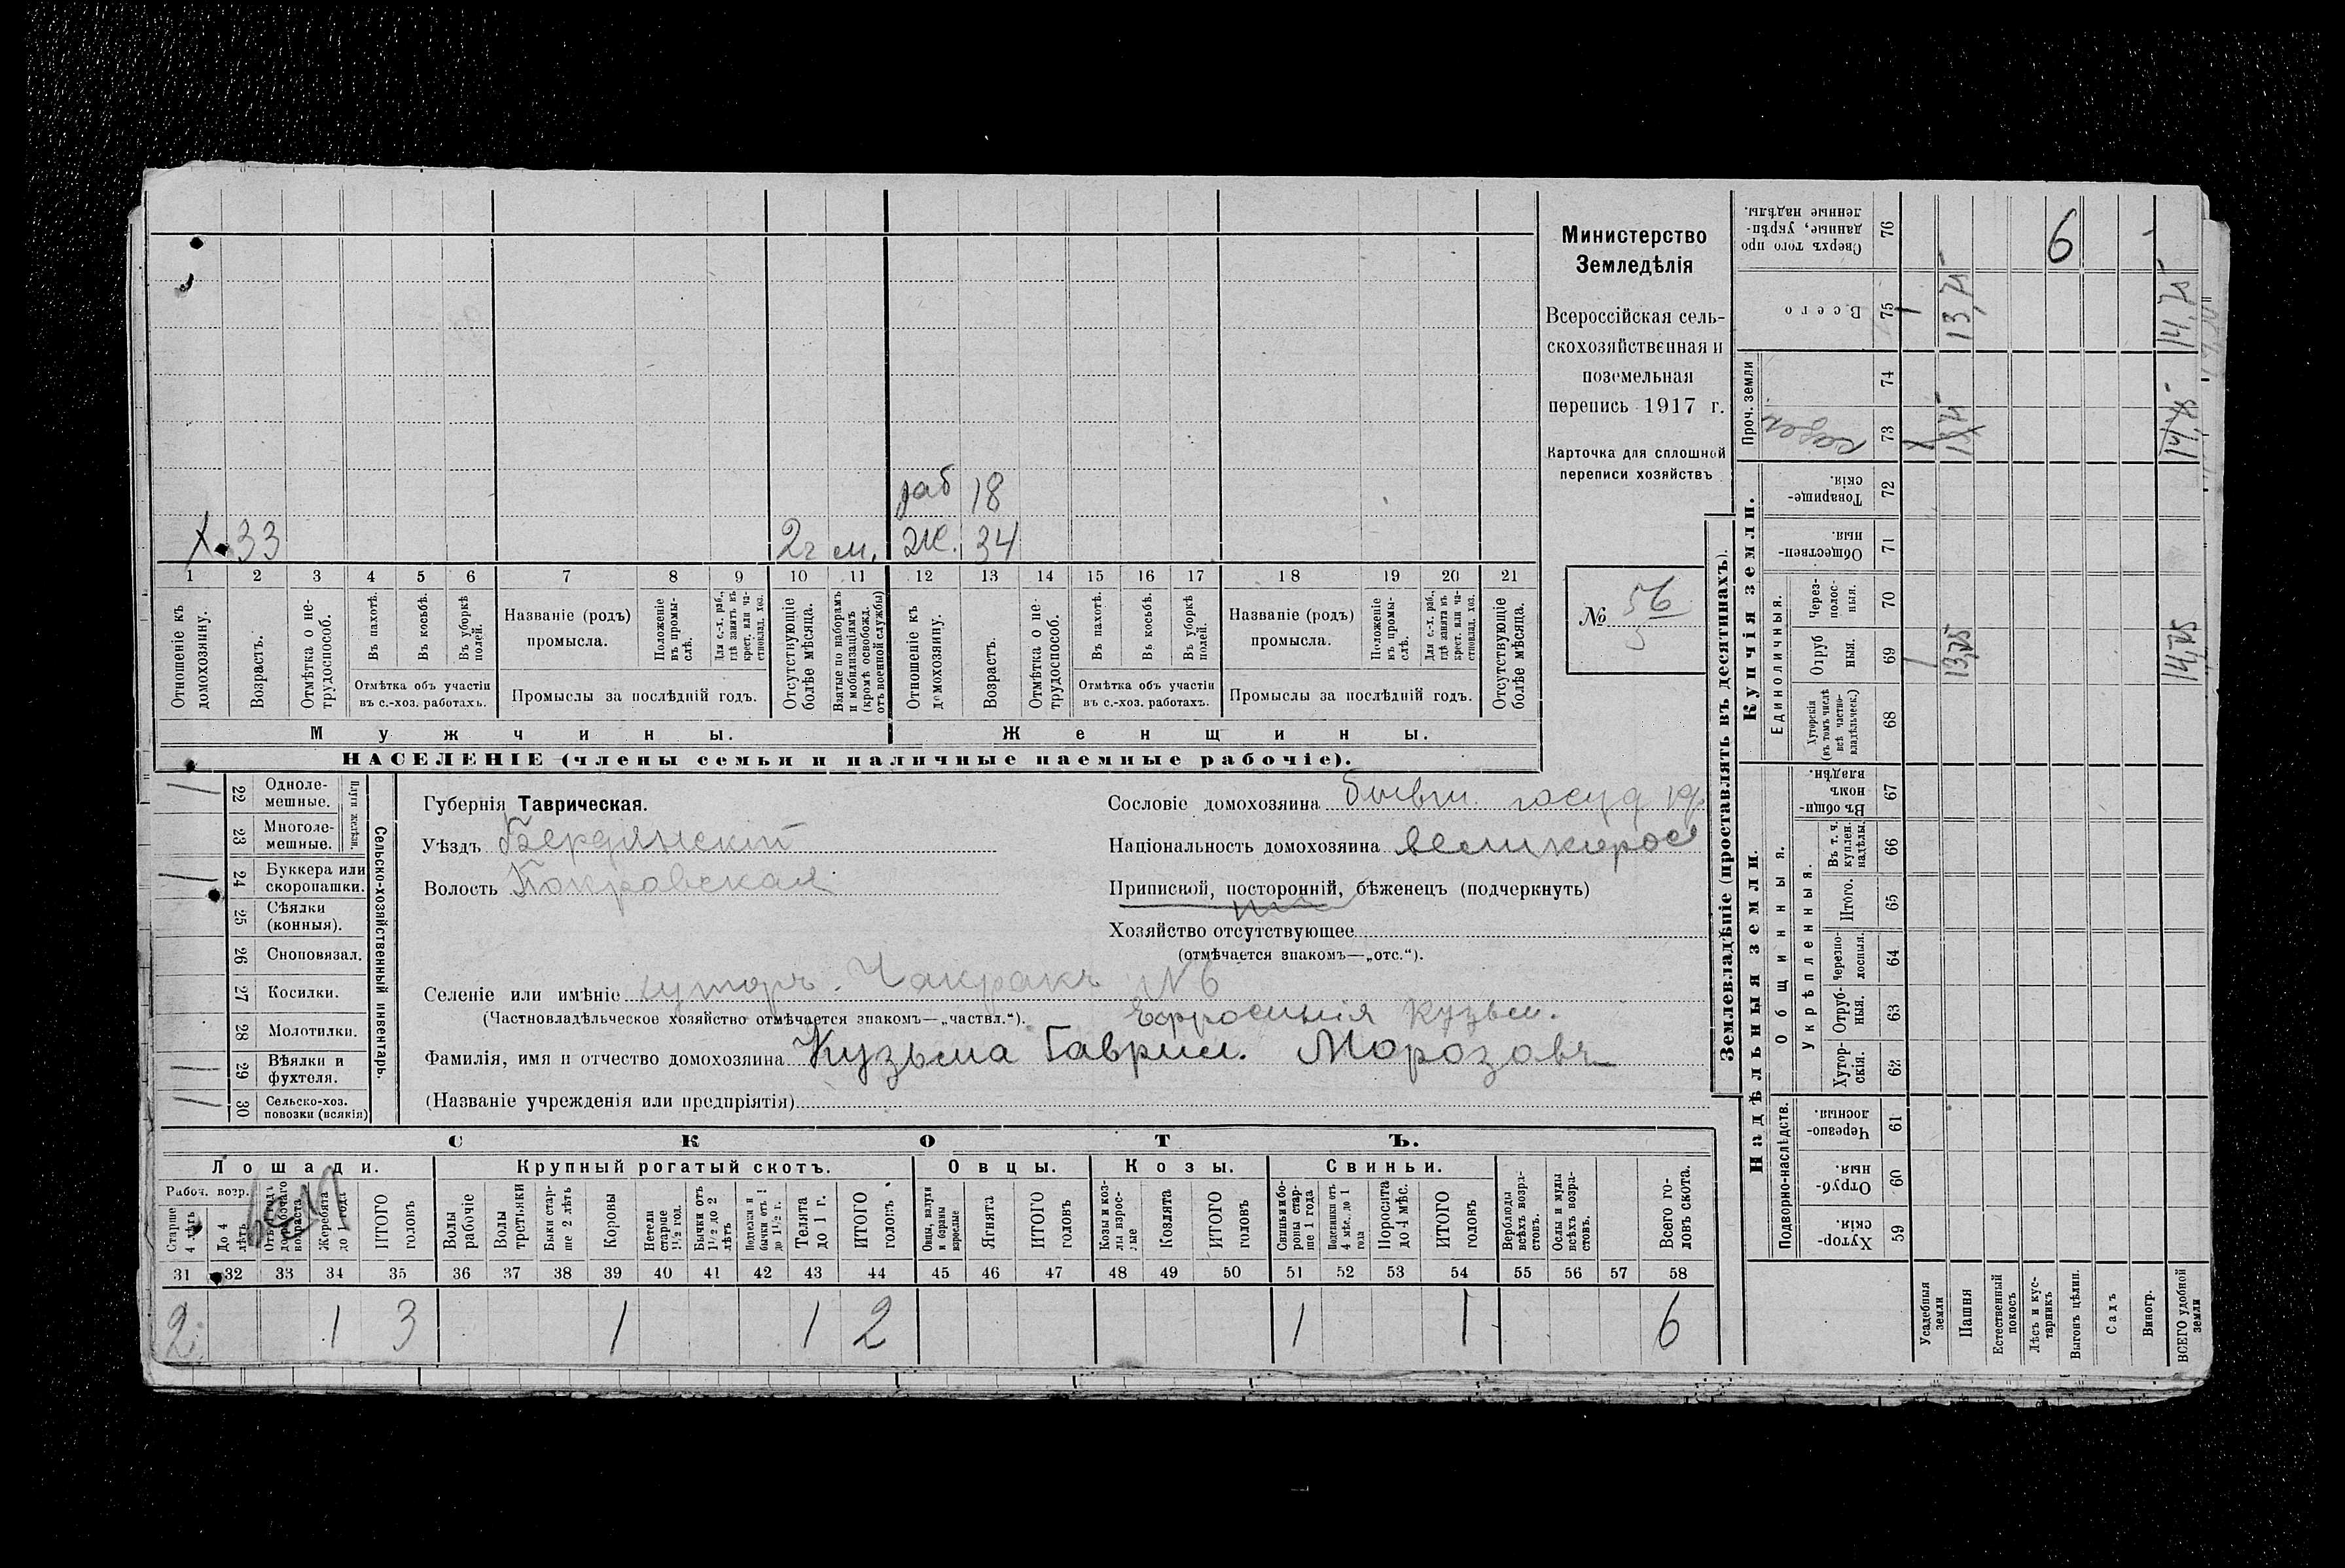 Министерство
Земледѣлія
Всероссійская сель-
скохозяйственная и
поземельная
перепись 1917 г.
Карточка для сплошной
переписи хозяйствъ
№ 56
раб 18
Х. 33 2 г м. ж. 34
1 2 3 4 5 6 7 8 9 10 11 12 13 14 15 16 17 18 19 20 21
Отношеніе къ домохозяину.
Возрастъ.
Отмѣтка о не-трудоспособ.
Въ пахотѣ.
Въ косьбѣ.
Въ уборкѣ полей.
Отмѣтка объ участіи
въ с.-хоз. работахъ.
Названіе (родъ)
промысла.
Положеніе въ промы-слѣ.
Для с.-х. раб., гдѣ занятъ въ крест. или ча-стновлад. хоз.
Промыслы за послѣдній годъ.
Отсутствующіе болѣе мѣсяца.
Взятые по наборамъ и мобилизаціямъ (кромѣ освобожд. отъ военной службы)
Отношеніе къ домохозяину.
Возрастъ.
Отмѣтка о не-трудоспособ.
Въ пахотѣ.
Въ косьбѣ.
Въ уборкѣ полей.
Отмѣтка объ участіи
въ с.-хоз. работахъ.
Названіе (родъ)
промысла.
Положеніе въ промы-слѣ.
Для с.-х. раб., гдѣ занята въ крест. или ча-стновлад. хоз.
Промыслы за послѣдній годъ.
Отсутствующіе болѣе мѣсяца.
Мужчины. Женщины.
НАСЕЛЕНІЕ (члены семьи и наличные наемные рабочіе).
Сельско-хозяйственный инвентарь.
Плуги желѣзн.
22 Одноле-мешные. 1
23 Многоле-мешные.
24 Буккера или скоропашки. 1
25 Сѣялки (конныя).
26 Сноповязал.
27 Косилки.
28 Молотилки.
29 Вѣялки и фухтеля. 1
30 Сельско-хоз. повозки (всякія) 1
Губернія Таврическая.
Уѣздъ Бердянскій
Волость Покровская
Сословіе домохозяина бывш. госуд кр.
Національность домохозяина великорос
Приписной, посторонній, бѣженецъ (подчеркнуть)
Хозяйство отсутствующее
(отмѣчается знакомъ—„отс.“).
Селеніе или имѣніе хуторъ. Чакракъ №6
(Частновладѣльческое хозяйство отмѣчается знакомъ—„частвл.“).
Ефросинія Кузьм.
Фамилія, имя и отчество домохозяина Кузьма Гаврил. Морозовъ
(Названіе учрежденія или предпріятія)
СКОТЪ.
Лошади. Крупный рогатый скотъ. Овцы. Козы. Свиньи.
Рабоч. возр.
Старше 4 лѣтъ
До 4 лѣтъ
Отъ 1 года до рабочаго возраста
Жеребята до 1 года
ИТОГО головъ
Волы рабочіе
Волы третьяки
Быки стар-ше 2 лѣтъ
Коровы
Нетели старше 1½ год.
Бычки отъ 1½ до 2 лѣтъ
Подтелки и бычки отъ 1 до 1½ г.
Телята до 1 г.
ИТОГО головъ
Овцы, валухи и бараны взрослые
Ягнята
ИТОГО головъ
Козы и коз-лы взрос-лые
Козлята
ИТОГО головъ
Свиньи и бо-ровы стар-ше 1 года
Подсвинки отъ 4 мѣс. до 1 года
Поросята до 4 мѣс.
ИТОГО головъ
Верблюды всѣхъ возра-стовъ.
Ослы и мулы всѣхъ возра-стовъ.
Всего го-ловъ скота.
31 32 33 34 35 36 37 38 39 40 41 42 43 44 45 46 47 48 49 50 51 52 53 54 55 56 57 58
2 1 3 1 1 2 1 1 6
Землевладѣніе (проставлять въ десятинахъ).
Надѣльныя земли. Купчія земли. Проч. земли
Подворно-наслѣдств.
Общинныя.
Укрѣпленныя.
Единоличныя.
59 Хутор-скія.
60 Отруб-ныя.
61 Черезпо-лосныя.
62 Хутор-скія.
63 Отруб-ныя.
64 Черезпо-лосныя.
65 Итого.
66 Въ т. ч. куплен. надѣлы.
67 Въ общин-номъ владѣн.
68 Хуторскія (въ томъ числѣ всѣ частно-владѣльческ.)
69 Отруб-ныя.
70 Через-полос-ныя.
71 Обществен-ныя.
72 Товарище-скія.
73
74
75 Всего
76 Сверхъ того про-данные, укрѣп-ленные надѣлы.
Усадебныя земли 1
Пашня 13,75 13,75 13,75
Естественный покосъ
Лѣсъ и кус-тарникъ
Выгонъ цѣлин. 6
Садъ
Виногр.
ВСЕГО удобной земли 14,75 14,75 14,75